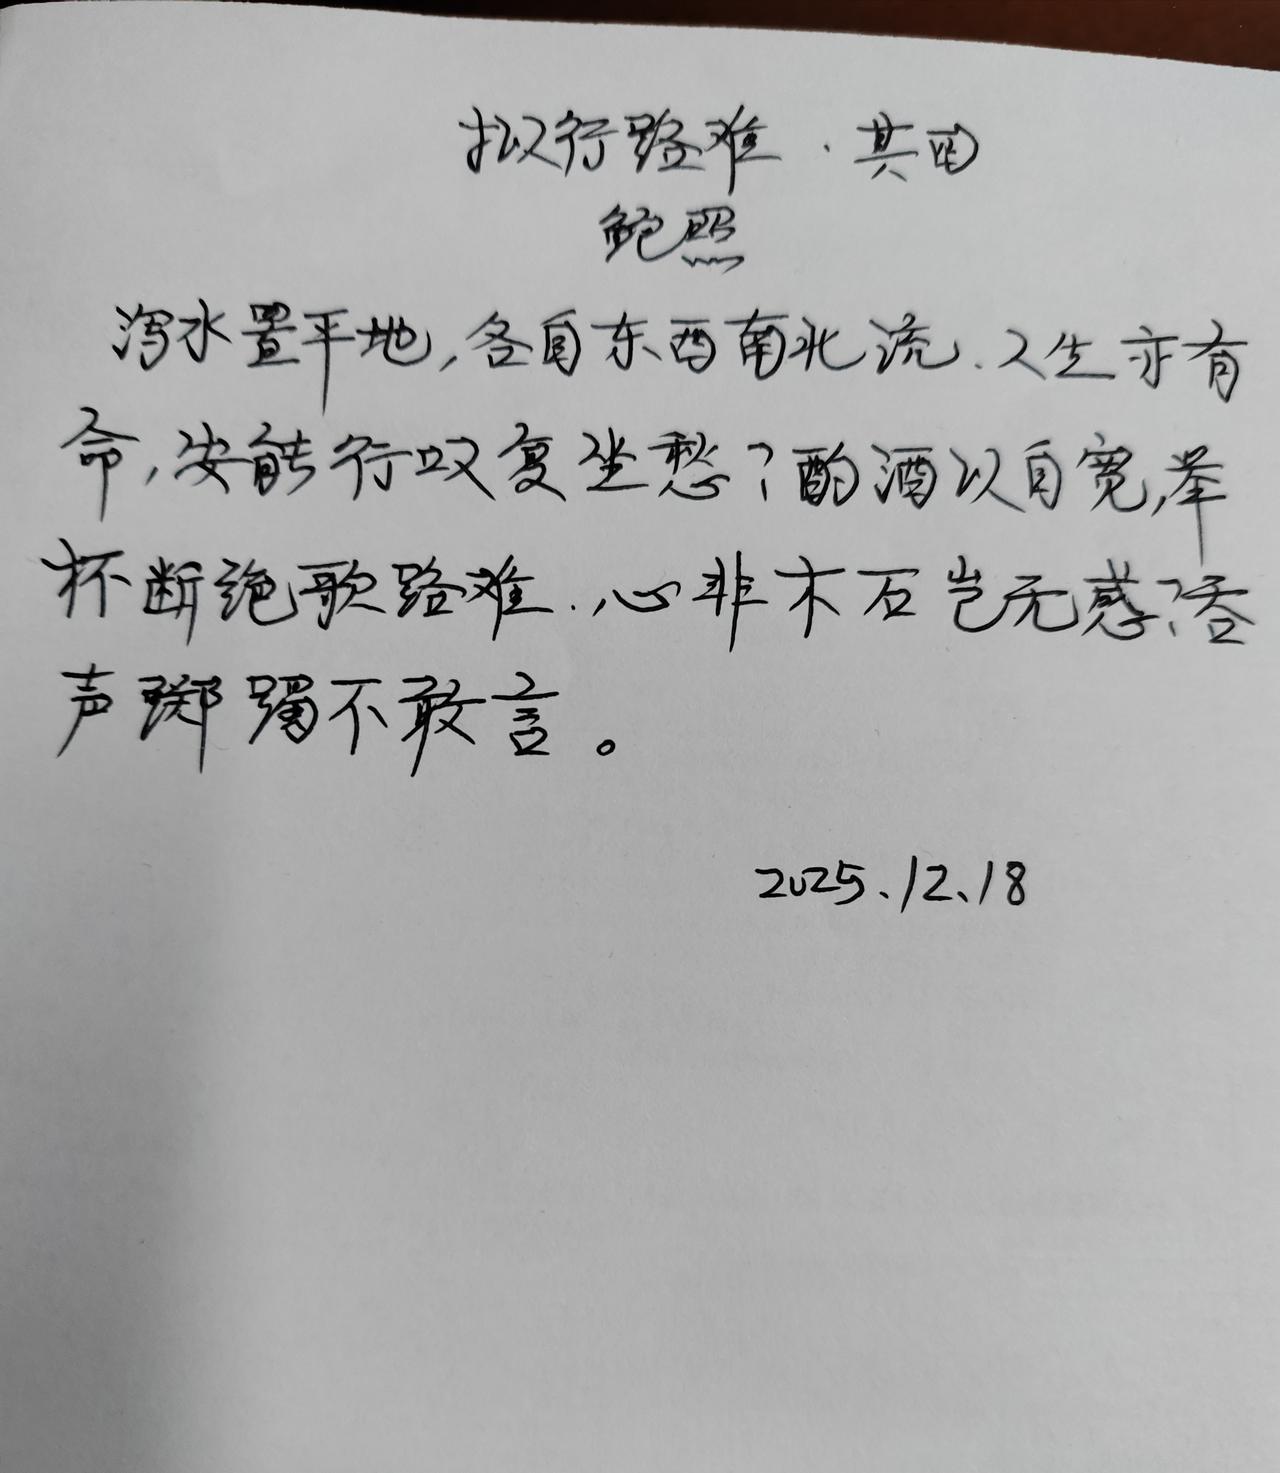 拟行路难·其四
鲍照
泻水置平地,各自东西南北流.人生亦有
命,安能行叹复坐愁?酌酒以自宽,举
杯断绝歌路难.心非木石岂无惑?吞
声踯躅不敢言。
2025.12.18